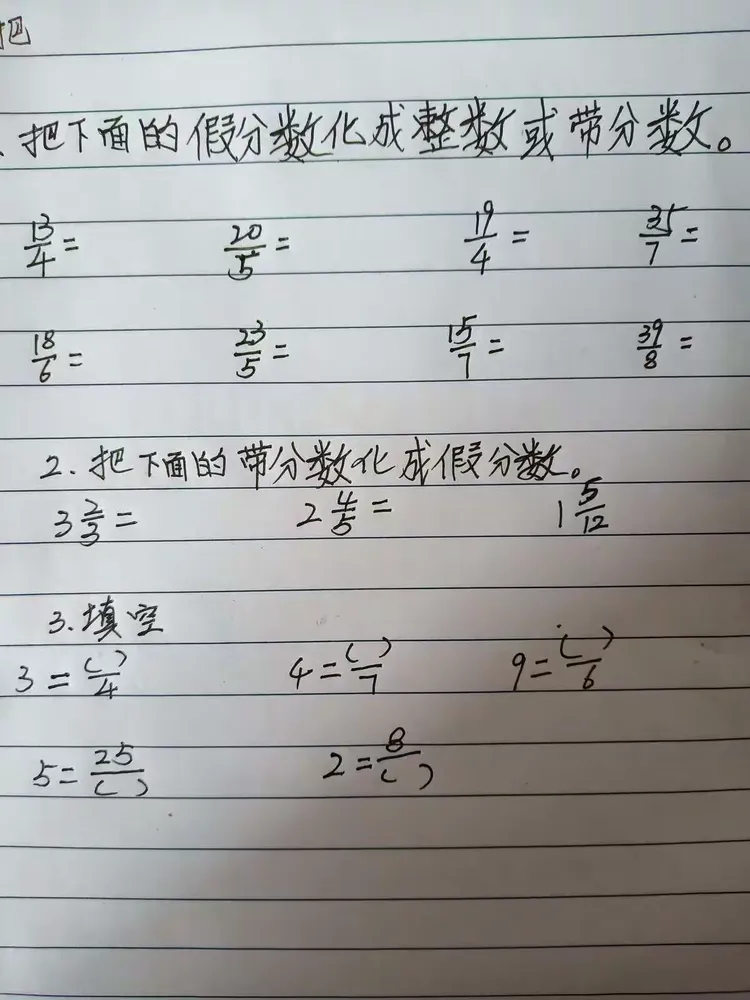 把
、把下面的假分数化成整数或带分数。
13/4= 20/5= 19/4= 35/7=
18/6= 23/5= 15/7= 39/8=
2.把下面的带分数化成假分数。
3 2/3= 2 4/5= 1 5/12
3.填空
3=( )/4 4=( )/7 9=( )/6
5=25/( ) 2=8/( )